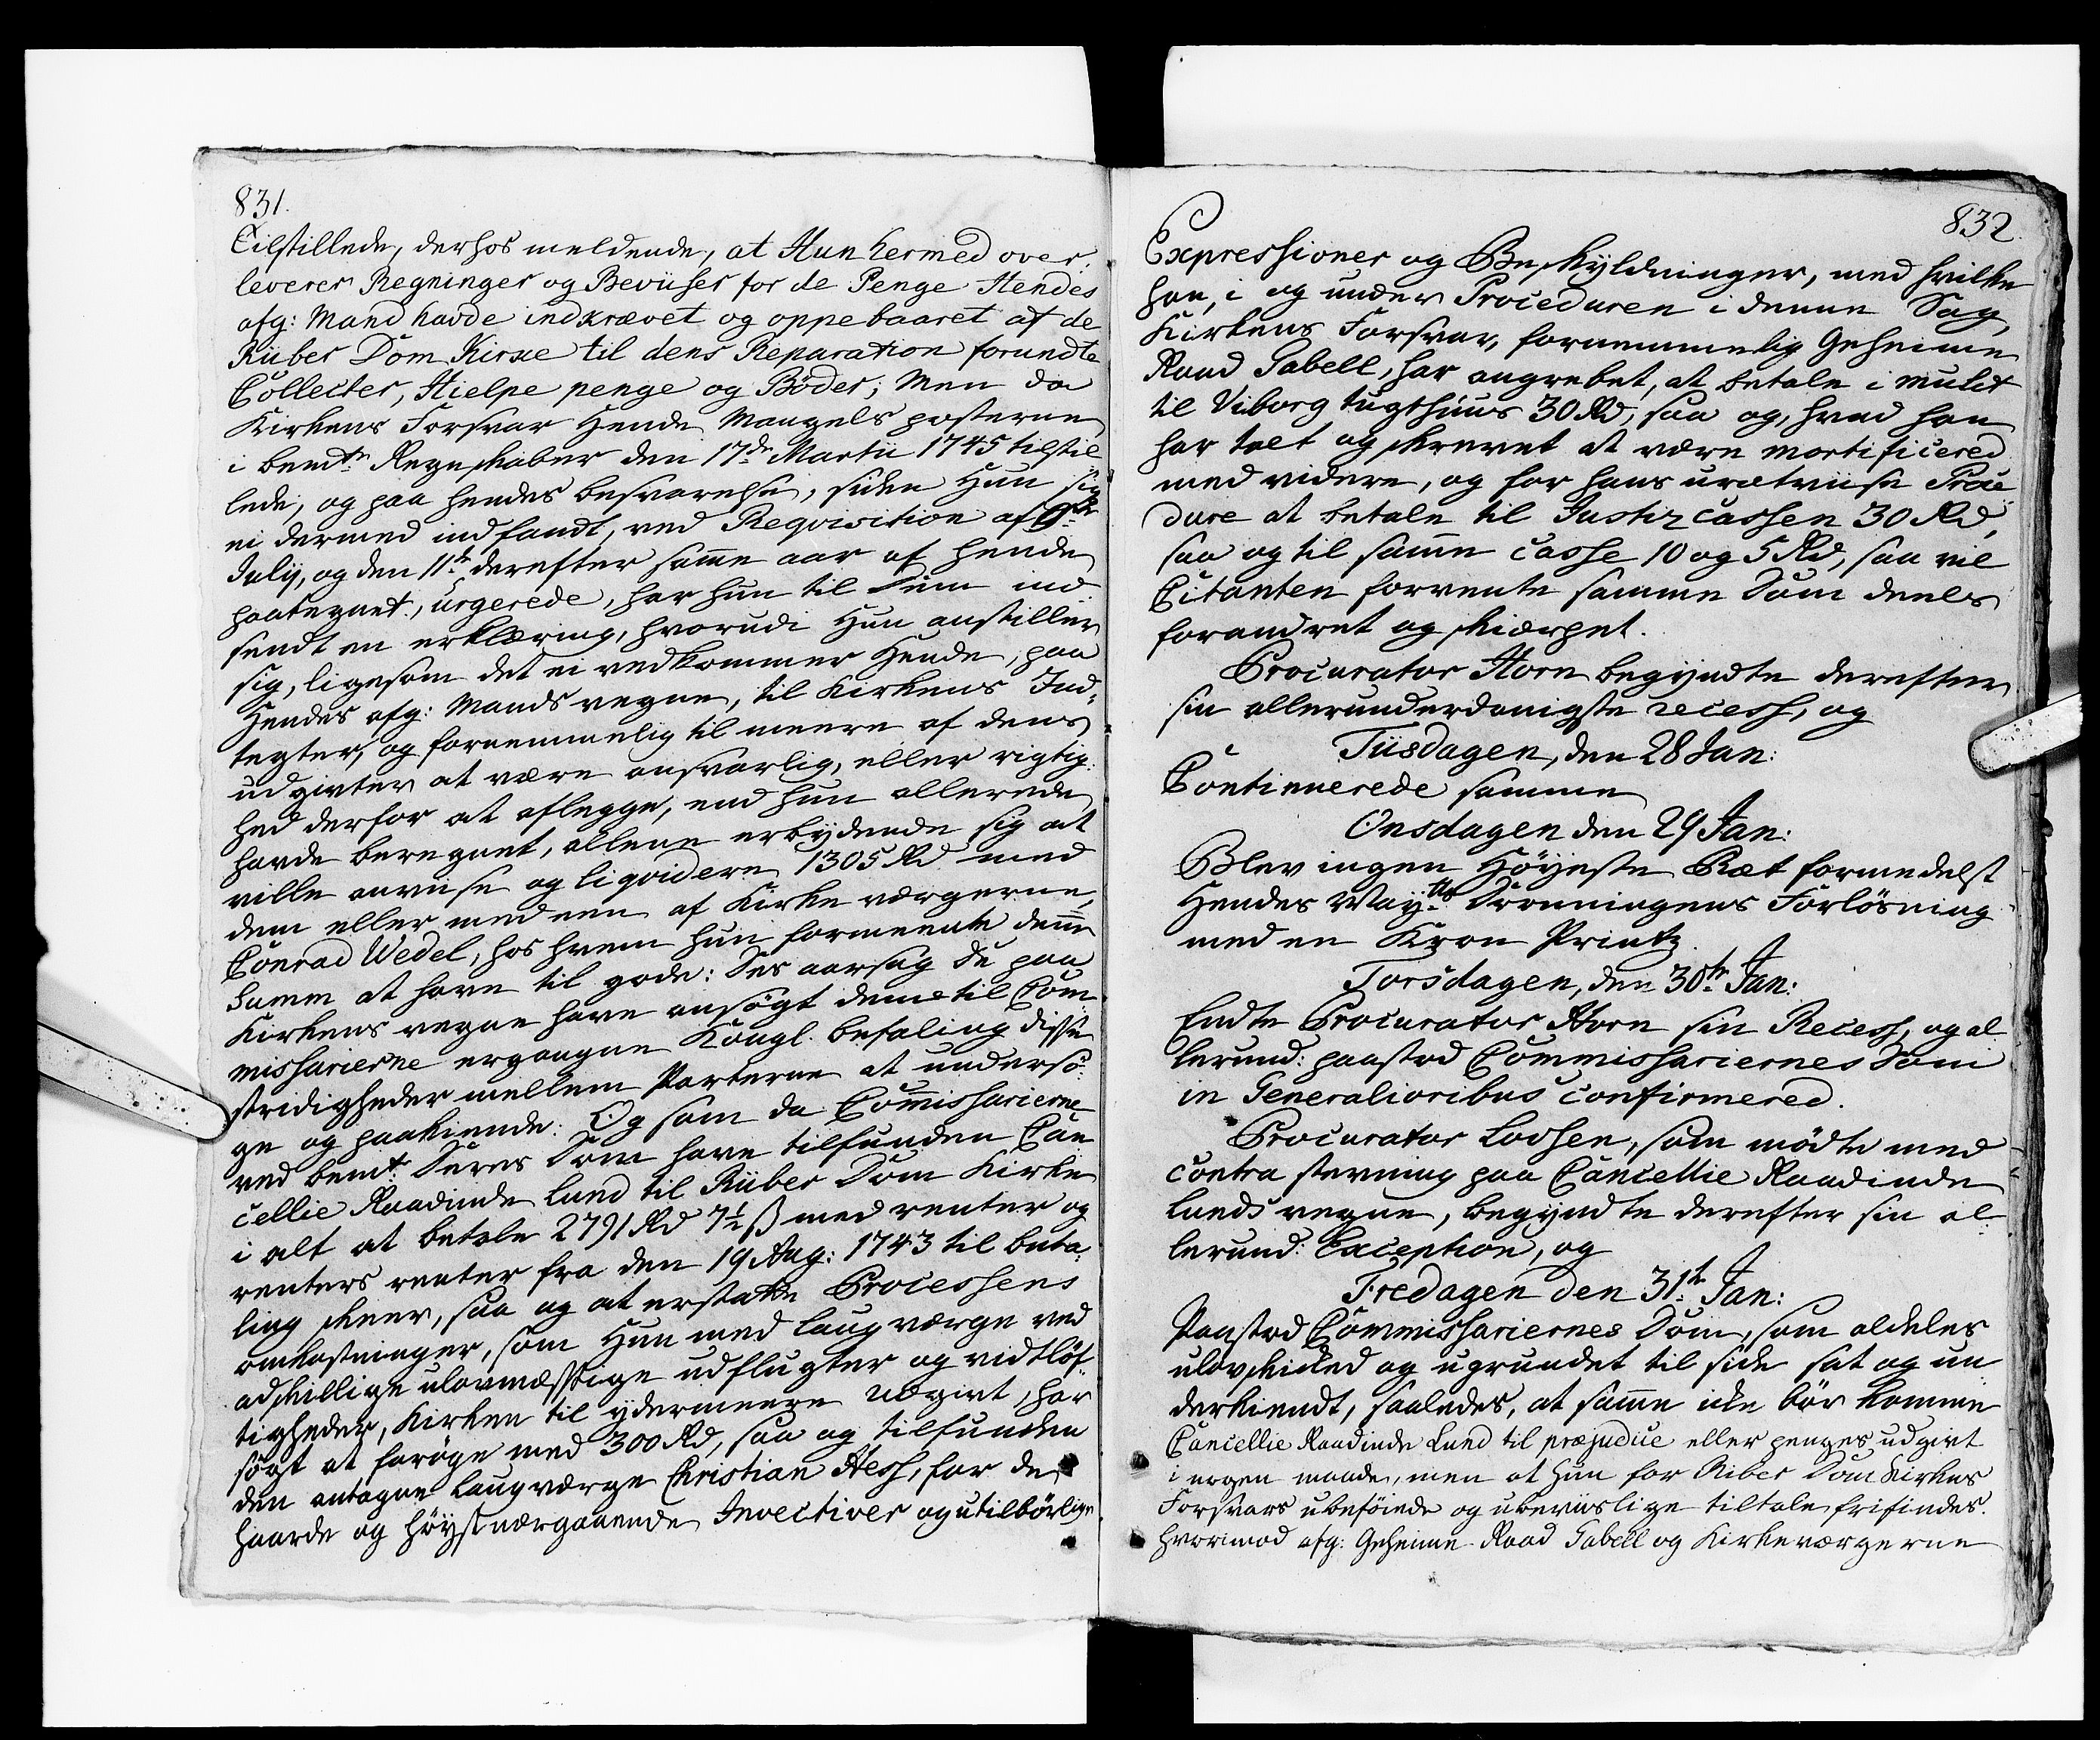 831.
Tilstillede, derhos meldende, at Hun hermed over-
leverer Regninger og Beviiser for de Penge Hendes
afg: Mand havde indkrævet og oppebaaret af de
Riiber Dom Kirke til dens Reparation forundte
Collecter, Hielpe penge og Böder; Men da
Kirkens Forsvar Hende Mangels posterne
i bemte Regnskaber den 17de Martii 1745 tilstil-
lede, og paa hendes besvarelse, siden Hun sig
ei dermed indfandt, ved Reqvisition af 9de
July, og den 11te derefter samme aar af hende
paategnet, urgerede, har hun til Dem ind-
sendt en erklæring, hvorudi Hun anstiller
sig, ligesom det ei vedkommer Hende, paa
Hendes afg: Mands vegne, til Kirkens Ind-
tegter, og fornemmelig til meere af dens
udgivter at være ansvarlig, eller rigtig-
hed derfor at aflegge, end hun allerede
havde beregnet, allene erbydende sig at
ville anviise og liqvidere 1305 Rd med
dem eller med een af Kirke værgerne,
Conrad Wedel, hos hvem hun formeente denne
Summ at have til gode: Des aarsag De paa
Kirkens vegne have ansögt denne til Com-
missarierne ergangne Kongl. befaling disse
stridigheder mellem Parterne at undersö-
ge og paakiende: Og som da Commissarierne
ved bemt Deres Dom have tilfunden Can-
cellie Raadinde Lund til Riiber Dom Kirke
i alt at betale 2791 Rd 7½ ß med renter og
renters renter fra den 19 Aug: 1743 til beta-
ling skeer, saa og at erstatte Processens
omkostninger, som Hun med Laugværge ved
adskillige ulovmæssige udflugter og vidtlöf-
tigheder, Kirken til ydermeere udgivt, har
sögt at foröge med 300 Rd, saa og tilfunden
den antagne Laugværge Christian Hess, for de
haarde og höyst nærgaaende Invectiver og utilbörlige
832.
Expressioner og Beskyldninger, med hvilke
han, i og under Proceduren i denne Sag,
Kirkens Forsvar, fornemmelig Geheime
Raad Gabell, har angrebet, at betale i mulct
til Viborg tugthuus 30 Rd, saa og, hvad han
har talt og skrevet at være mortificered
med videre, og for hans uretviise Proce-
dure at betale til Justiz cassen 30 Rd,
saa og til samme casse 10 og 5 Rd, saa vil
Citanten forvente samme Dom deels
forandret og skiærpet.
Procurator Horn begyndte derefter
sin allerunderdanigste recess, og
Tiisdagen, den 28 Jan:
Continuerede samme
Onsdagen den 29 Jan:
Blev ingen Höyeste Ræt formedelst
Hendes Mayts Dronningens Forlösning
med en Kron Printz.
Torsdagen, den 30te Jan:
Endte Procurator Horn sin Recess, og al-
lerund: paastod Commissariernes Dom
in Generalioribus confirmered.
Procurator Lovsen, som mödte med
contra stevning paa Cancellie Raadinde
Lunds vegne, begyndte derefter sin al-
lerund: Exception, og
Fredagen den 31te Jan:
Paastod Commissariernes Dom, som aldeles
ulovskicked og ugrundet til side sat og un-
derkiendt, saaledes, at samme icke bör komme
Cancellie Raadinde Lund til præjudice eller penges udgivt
i nogen maade, men at Hun for Riber Dom Kirkes
Forsvars ubeföiede og ubeviislige tiltale frifindes.
Hvorimod afg: Geheime-Raad Gabell og Kirkeværgerne